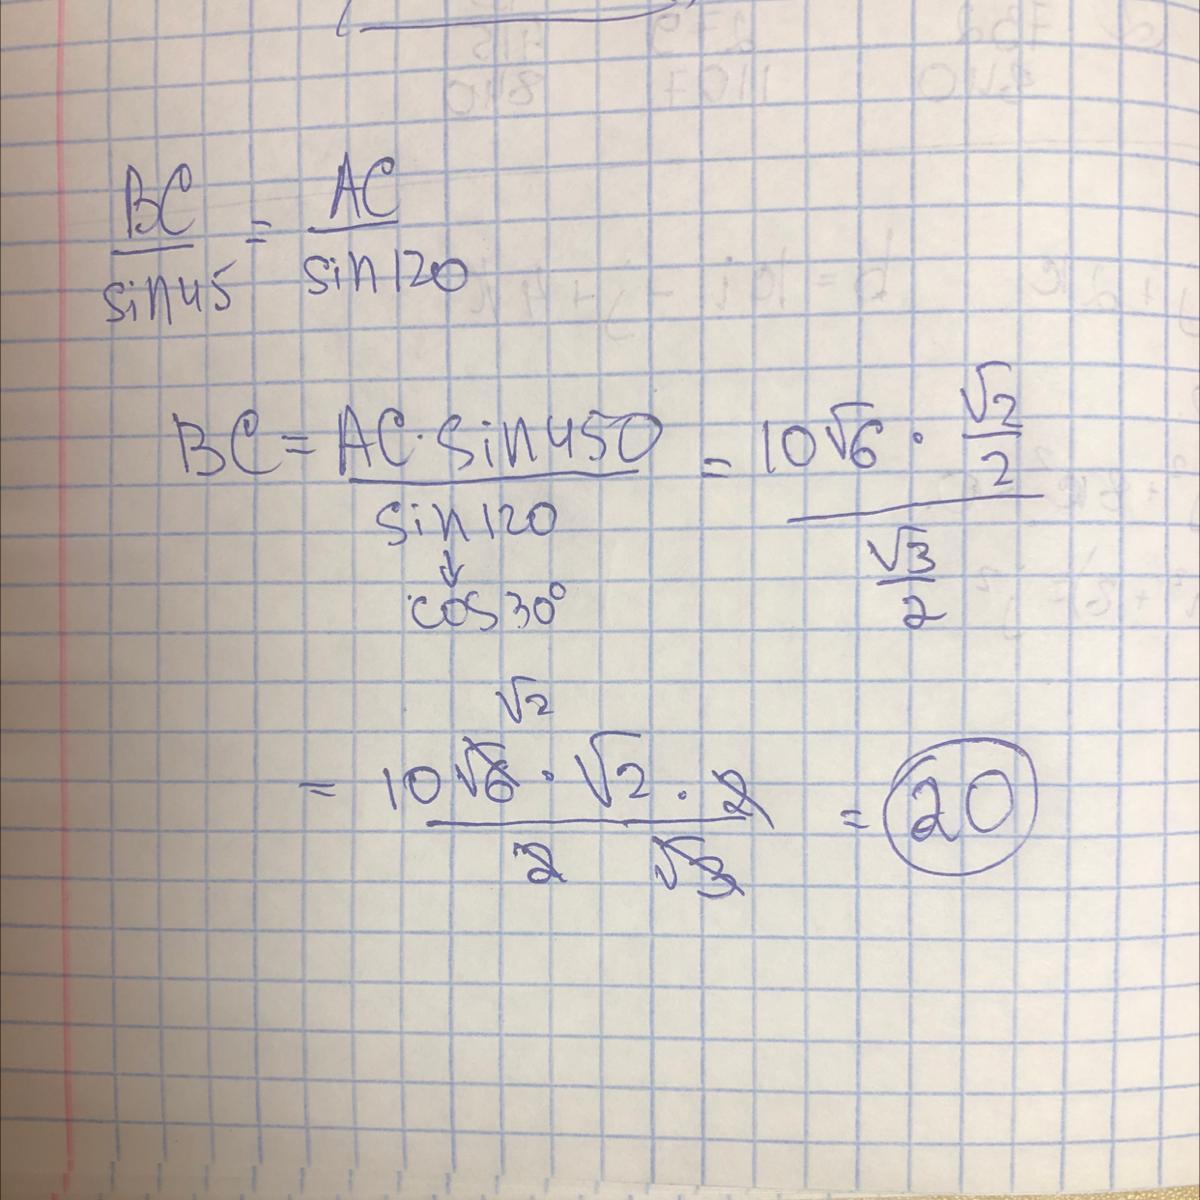 BC/sin45 = AC/sin120
BC = AC·sin450/sin120 = 10√6 · √2/2 / √3/2
↓
cos30°
√2
= 10√6 · √2 · 2 / 2 √3 = 20